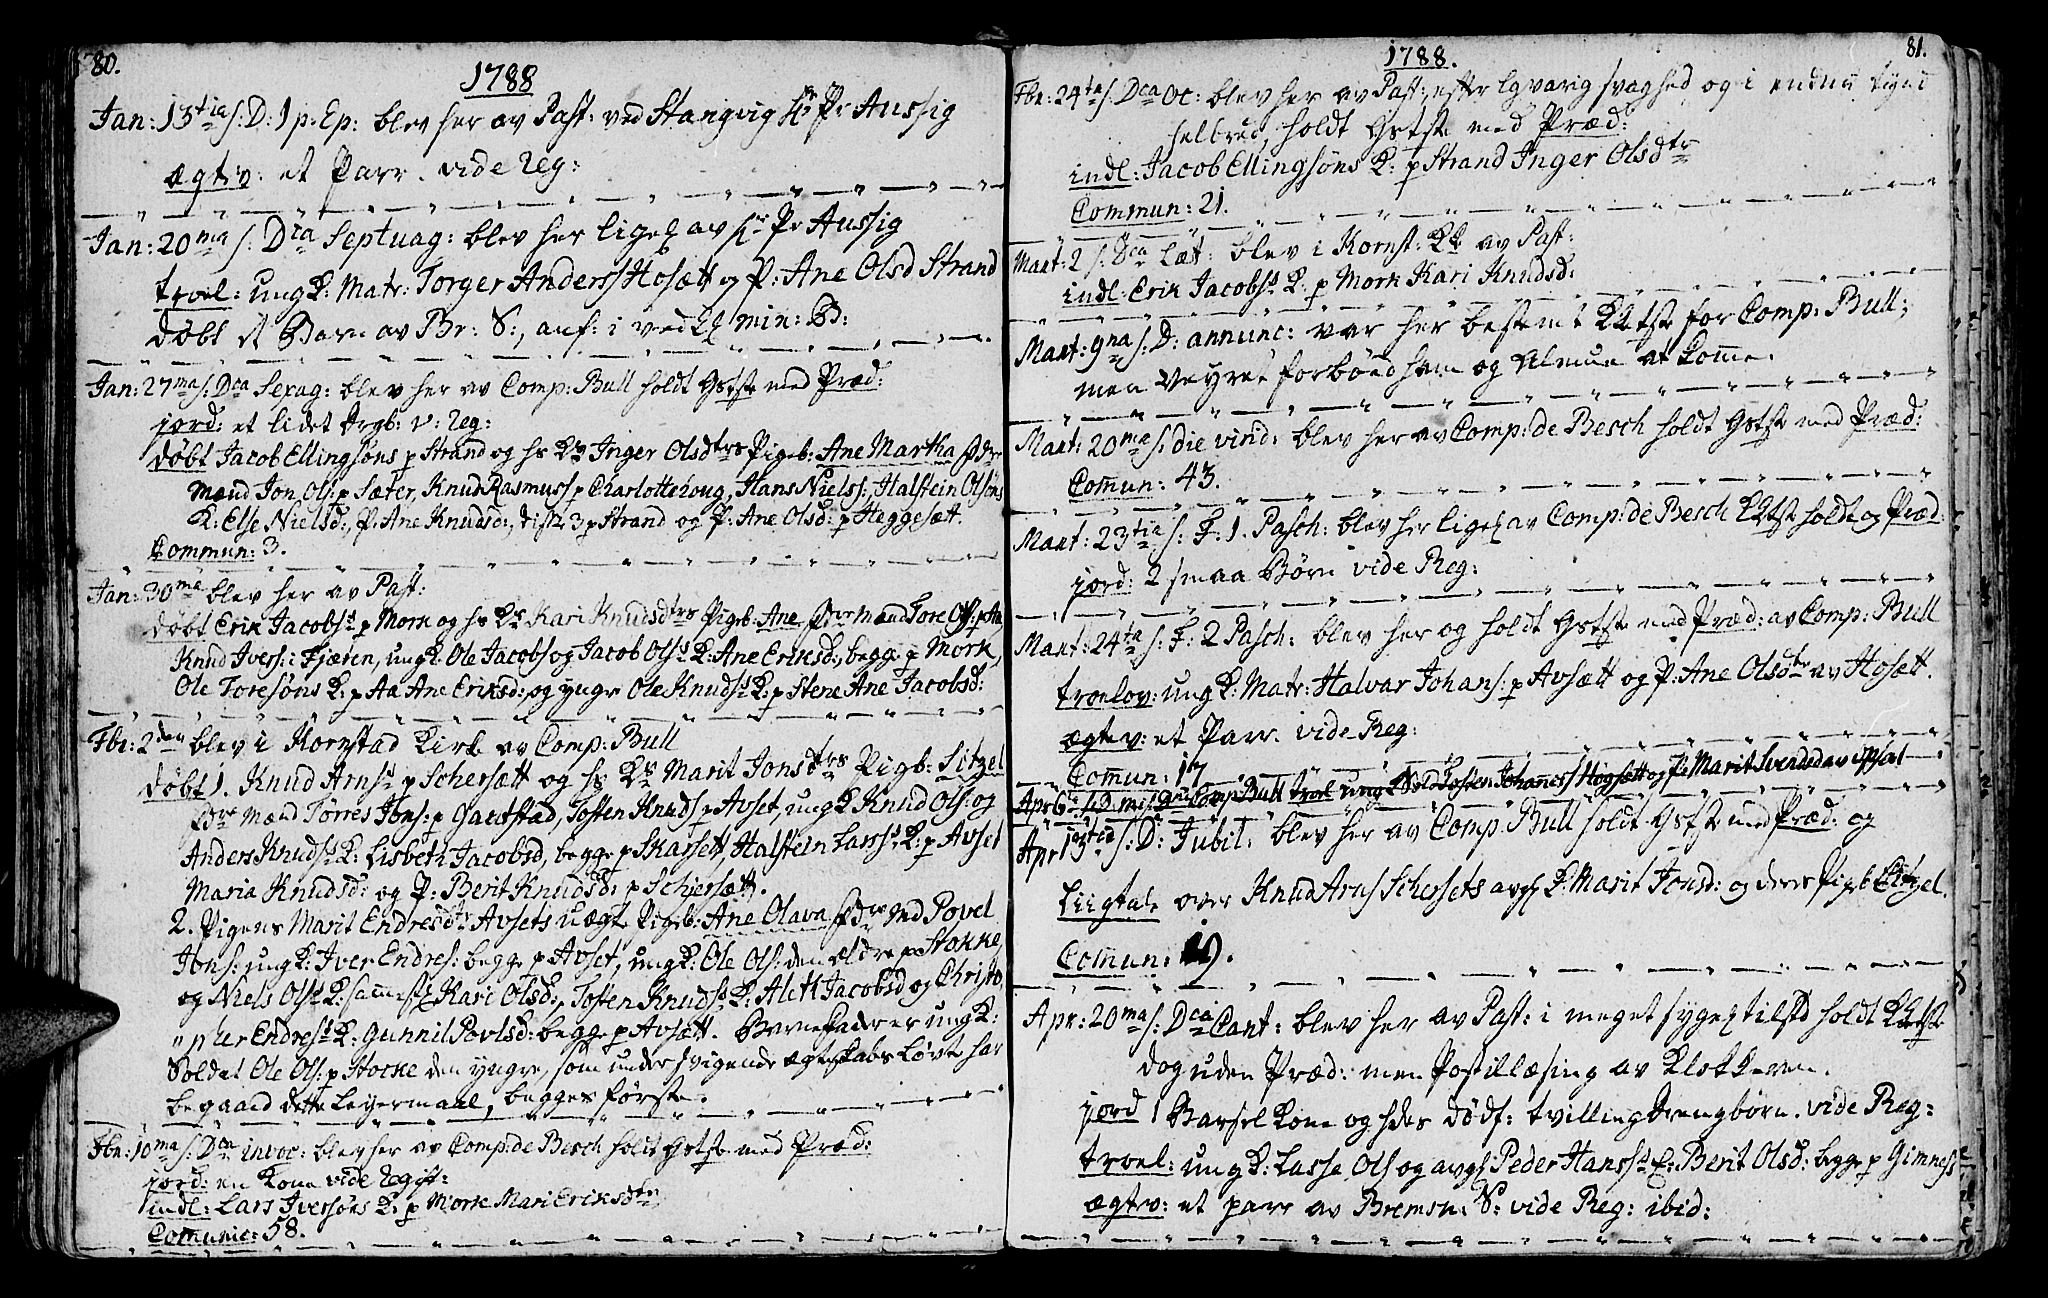 80.
1788
Jan: 13tia s: D: 1 p: Ep: blev her av Past: ved Stangvig Hr Pr Aussig
ægtv: et Parr. vide Reg:
Jan: 20ma s: Dca Septuag: blev her av Hr Pr Aussig
troel: ung K: Matr: Torger Anderss Hosætt og P: Ane Olsd Strand
døbt et Barn av Br: S:, anf: i ved min: B:
Jan: 27ma s: Dca Sexag: blev her av Comp: Bull holdt Gstste med Præd:
jord: et lidet Drgb: v: Reg:
døbt Jacob Ellingsøns p Strand og hs Ks Inger Olsdtrs Pigeb: Ane Martha
Mænd Jon Ols: p Sæter, Knud Rasmuss p Charlottehoug, Hans Niels:, Halstein Olsøns
K: Else Nielsd:, P: Ane Knudsd:, disse 3 p Strand og P: Ane Olsd: p Heggesætt.
Commun: 3.
Jan: 30ma blev her av Past:
døbt Erik Jacobss p Mork og hs Ks Kari Knudsdtrs Pigeb: Ane Mænd Tore Ols: p Aa,
Knud Ivers: i Fjæren, ung K: Ole Jacobs og Jacob Olss K: Ane Eriksd:, begge p Mork,
Ole Toresøns K: p Aa Ane Eriksd:, og yngre Ole Knudss K: p Stene Ane Jacobsd:
Fbr: 2den blev i Kornstad Kirke av Comp: Bull
døbt 1. Knud Arnss p Schersætt og hs Ks Marit Jonsdtrs Pigb: Sitzel
Mænd Tørres Jons: p Gautstad, Tosten Knuds p Avset, ung K Knud Ols: og
Anders Knudss K: Lisbeth Jacobsd, begge p Skarsett, Halstein Larss K: p Avset
Maria Knudsd: og P: Berit Knudsd: p Schjersætt.
2. Pigens Marit Endresdtr Avsets uægte Pigeb: Ane Olava Md Povel
Jons: ung K: Iver Endres: begge p Avset, ung K: Ole Ols: den ældre p Stokke,
og Niels Olss K: sammests Kari Olsd:, Tosten Knudss K: Aleth Jacobsd og Christo,
pher Endress K: Gunnil Povlsd: begge p Avsætt. Barnefader er ung K:
Soldat Ole Ols: p Stocke den yngre, som under svigende Ægteskabs Løvte har
begaaed dette Leyermaal, begges første.
Fbr: 10ma s: Dca invoc: blev her av Comp: de Besch holdt Gstste med Præd:
jord: en Kone vide Regist:
indl: Lars Iversøns K: p Mork Mari Eriksdtr
Comunic: 58.
81.
1788.
Fbr: 24ta s: Dca Oc: blev her av Past:, efter lgvarig svaghed og i endnu
helbred, holdt Gstste med Præd:
indl: Jacob Ellingsøns K: p Strand Inger Olsdtr
Commun: 21.
Mart: 2 s: Dca Læt: blev i Kornst: Kk av Past:
indl: Erik Jacobss K: p Mork Kari Knudsd:
Mart: 9na s: D: annunc: var her bestemt KKtste for Comp: Bull;
men Veyret forbød ham og Almue at komme.
Mart: 20ma s: die virid: blev her av Comp: de Besch holdt Gstste med Præd:
Comun: 43.
Mart: 23tia s: F: 1. Pasch: blev her av Comp: de Besch KKtste holdt og Præd:
jord: 2 smaa Børn vide Reg:
Mart: 24ta s: F: 2 Pasch: blev her og holdt Gstste med Præd: av Comp: Bull
troelov: ung K: Matr: Halvar Johans: p Avsætt og P: Ane Olsdtr av Hosætt.
ægtev: et Parr. vide Reg:
Comun: 17
Apr 6 s: D Comp Bull troel ung K Sold Tosten Johanness Høgsett og P: Marit Svendsd
Apr 13tia s: D: Jubil: blev her av Comp: Bull holdt Gstste med Præd: og
Liigtale over Knud Arns Schersets avgs K: Marit Jonsd: og deres Pigeb Sitzel
Comun: 19.
Apr: 20ma s: Dca Cant: blev her av Past: i meget tilstd holdt KKtste
dog uden Præd: men Postillæsing av Klokkeren.
jord 1 Barsel Kone og hdes dødf: tvilling Drengbørn. vide Reg:
troel: ung K: Lasse Ols og avgs Peder Hanss E: Berit Olsd: begge p Gimnes
ægtv: et parr av Bremsn: S: vide Reg: ibid: